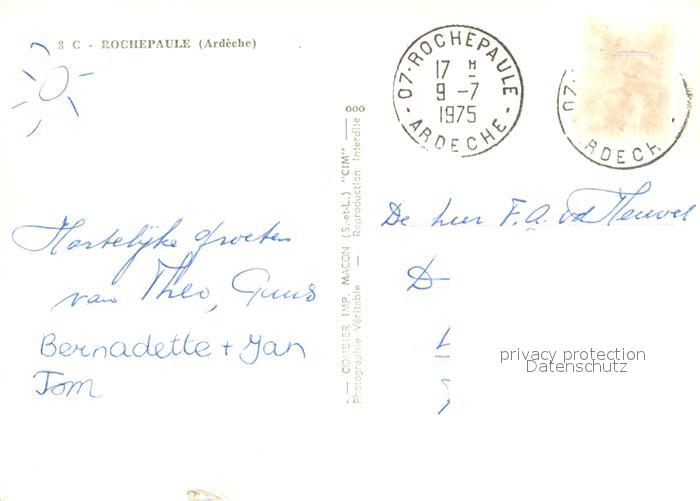 8 C - ROCHEPAULE (Ardèche)
07-ROCHEPAULE
17 H
9 -7
1975
- ARDECHE -
07
RDECH
COMBIER IMP. MACON (S.-et-L.) "CIM"
Photographie Véritable — Reproduction Interdite
Hartelijke groeten
van Theo, Guus
Bernadette + Jan
Tom
De heer F.A. vd Heuvel
D
privacy protection
Datenschutz